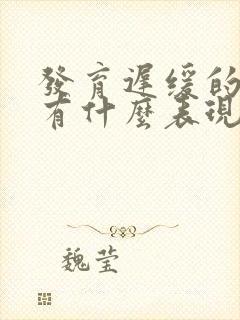 發育遲緩的
有什麼表現
魏莹